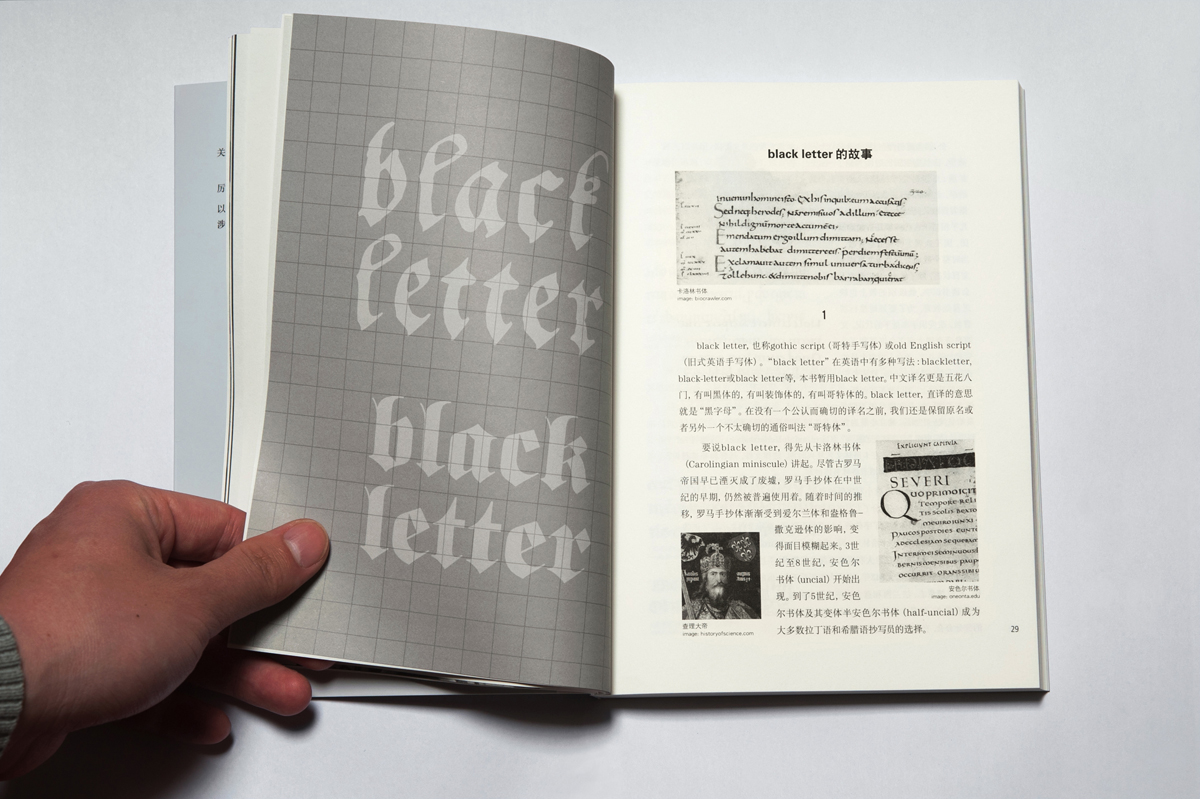 关
历
以
涉
black
letter
black
letter
black letter 的故事
inuenumhominesto Exhisinquibzeumaccusatis
Sednequeherodes, Naremisiuos adillum etecce
Nihildignūmorteactumeei
Emendatum ergoillum dimittam, Necesse
autemhabebat dimittereeis perdiemfestūunū;
Exclamauitautem simul uniuersaturbadicens,
tollehunc &dimittenobis barrabanquierat
卡洛林书体
image: biocrawler.com
1
black letter, 也称gothic script (哥特手写体) 或old English script
(旧式英语手写体)。“black letter” 在英语中有多种写法: blackletter,
black-letter或black letter等, 本书暂用black letter。中文译名更是五花八
门, 有叫黑体的, 有叫装饰体的, 有叫哥特体的。black letter, 直译的意思
就是“黑字母”。在没有一个公认而确切的译名之前, 我们还是保留原名或
者另外一个不太确切的通俗叫法“哥特体”。
要说black letter, 得先从卡洛林书体
(Carolingian miniscule) 讲起。尽管古罗马
帝国早已湮灭成了废墟, 罗马手抄体在中世
纪的早期, 仍然被普遍使用着。随着时间的推
移, 罗马手抄体渐渐受到爱尔兰体和盎格鲁-
撒克逊体的影响, 变
得面目模糊起来。3世
纪至8世纪, 安色尔
书体 (uncial) 开始出
现。到了5世纪, 安色
尔书体及其变体半安色尔书体 (half-uncial) 成为
大多数拉丁语和希腊语抄写员的选择。
EXPLICIUNT CAPITULA
SEVERI
QUOPRIMOICIT
TEMPORE RELI
TISSCOLIS BEATO
PAUCOSPOSTDIES EUNTE
BERNISMENSIBUS PAUP
OCCURRIT ORANSSIBIU
安色尔书体
image: oneonta.edu
查理大帝
image: historyofscience.com
29